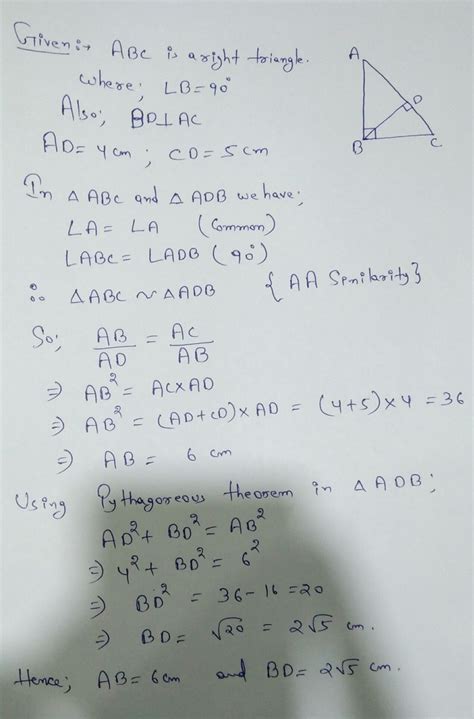 Given:→ ABC is a right triangle.
where; ∠B=90°
Also; BD⊥AC
AD= 4cm ; CD= 5cm
A
D
B
C
In △ ABC and △ ADB we have;
∠A = ∠A (Common)
∠ABC = ∠ADB (90°)
∴ △ABC ~ △ADB { AA Similarity}
So; AB/AD = AC/AB
⇒ AB² = AC×AD
⇒ AB² = (AD+CD)×AD = (4+5)×4 = 36
⇒ AB = 6 cm
Using Pythagoreous theorem in △ADB;
AD² + BD² = AB²
⇒ 4² + BD² = 6²
⇒ BD² = 36-16 =20
⇒ BD = √20 = 2√5 cm.
Hence; AB= 6cm and BD= 2√5 cm.